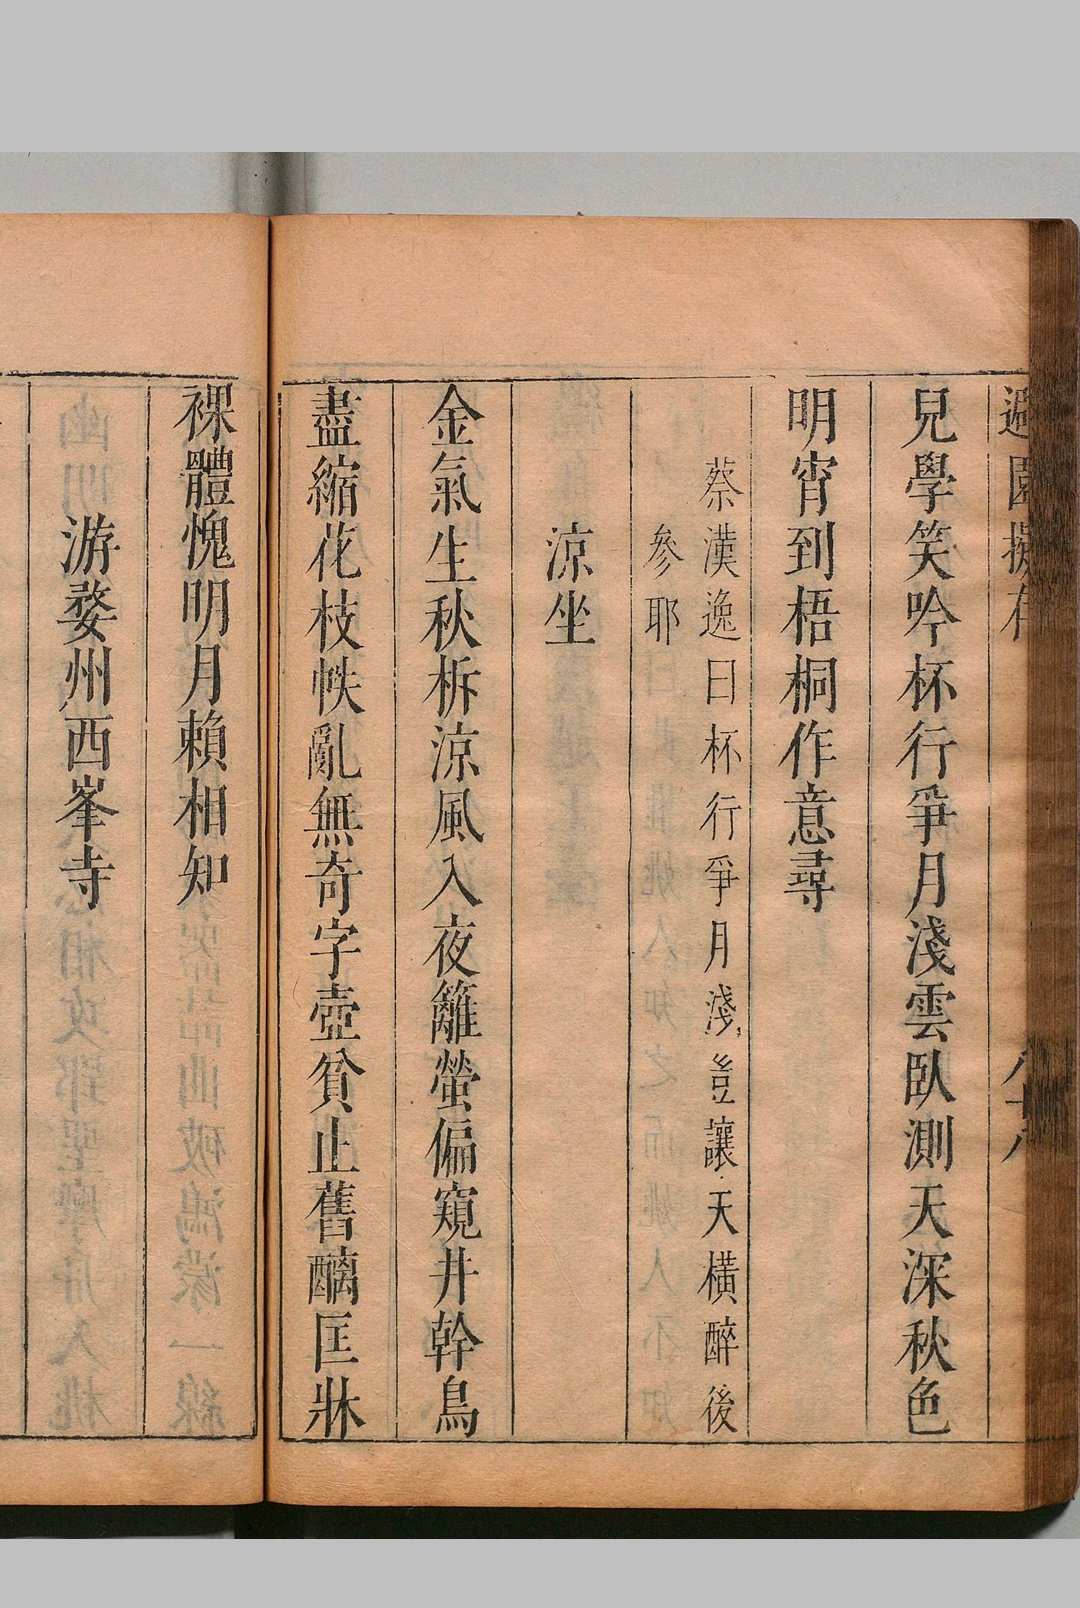 避園擬存
八十八
兒學笑吟杯行爭月淺雲臥測天深秋色
明宵到梧桐作意尋
蔡漢逸曰杯行爭月淺豈讓天橫醉後
參耶
涼坐
金氣生秋柝涼風入夜籬螢偏窺井幹鳥
盡縮花枝帙亂無奇字壺貧止舊醨匡牀
裸體愧明月賴相知
游婺州西峯寺